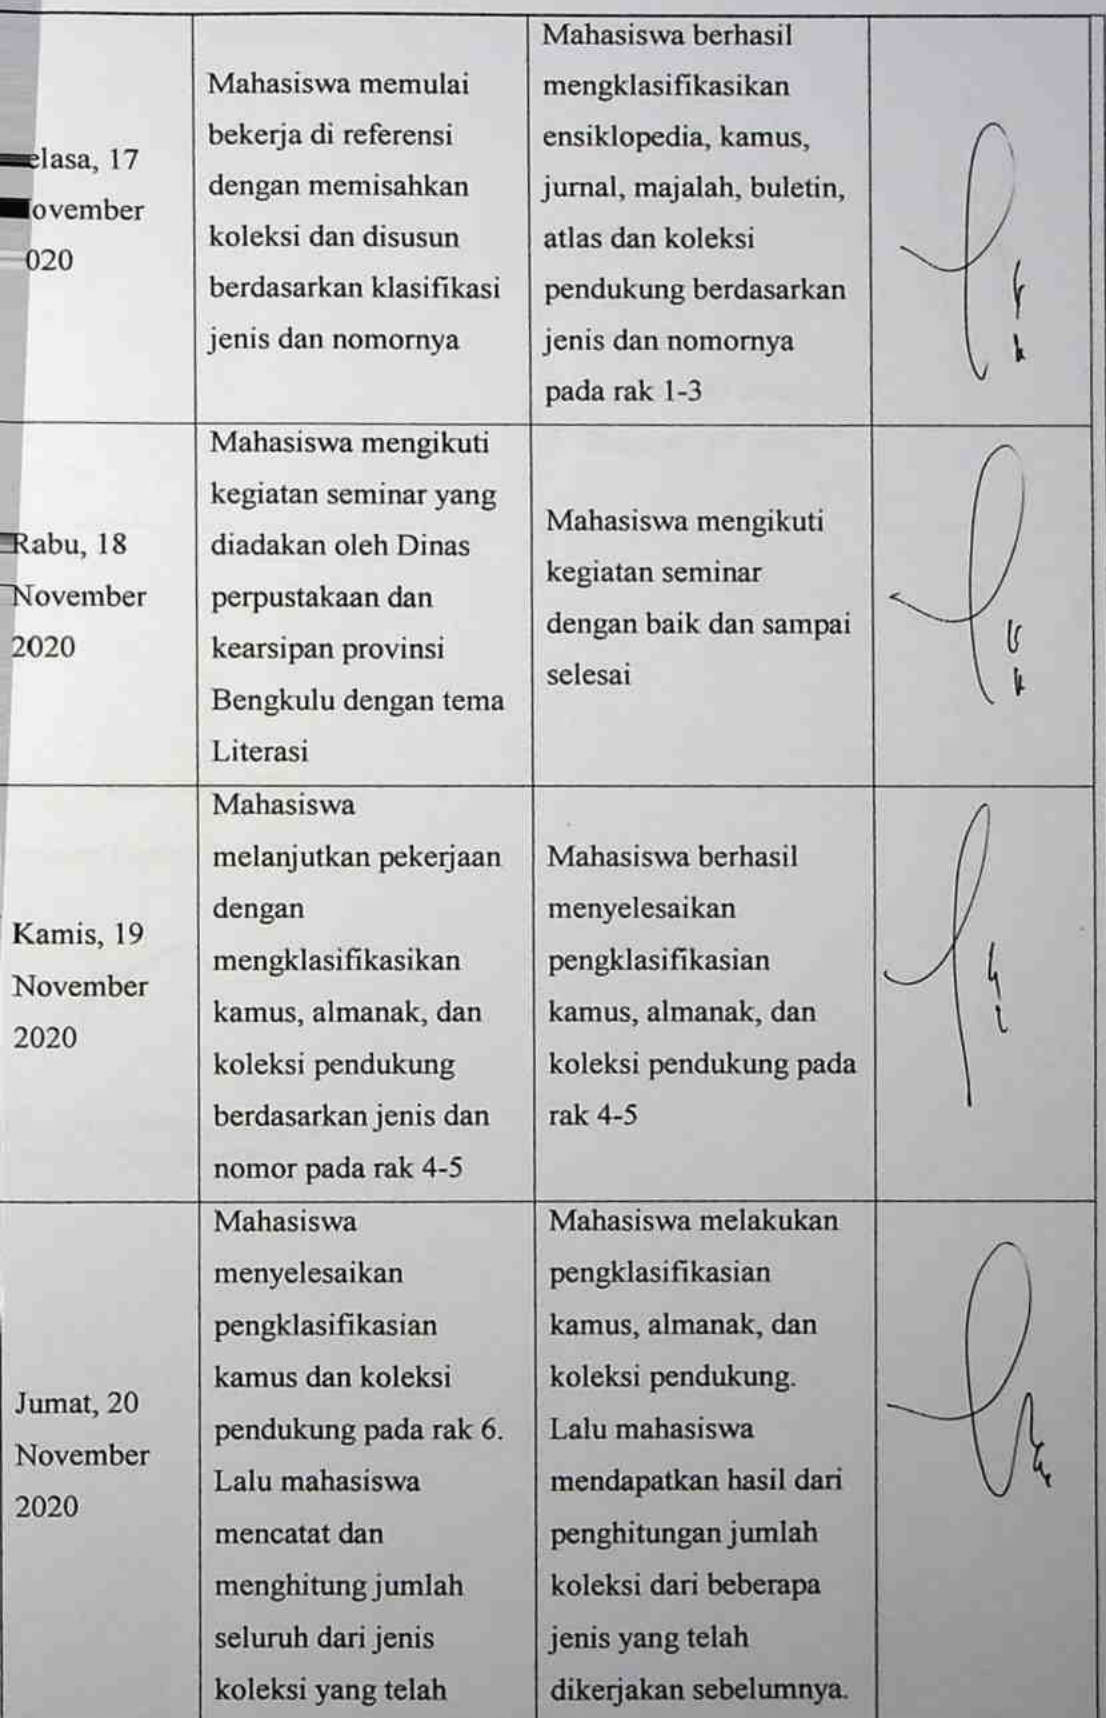 elasa, 17
ovember
020
Mahasiswa memulai
bekerja di referensi
dengan memisahkan
koleksi dan disusun
berdasarkan klasifikasi
jenis dan nomornya
Mahasiswa berhasil
mengklasifikasikan
ensiklopedia, kamus,
jurnal, majalah, buletin,
atlas dan koleksi
pendukung berdasarkan
jenis dan nomornya
pada rak 1-3
Rabu, 18
November
2020
Mahasiswa mengikuti
kegiatan seminar yang
diadakan oleh Dinas
perpustakaan dan
kearsipan provinsi
Bengkulu dengan tema
Literasi
Mahasiswa mengikuti
kegiatan seminar
dengan baik dan sampai
selesai
Kamis, 19
November
2020
Mahasiswa
melanjutkan pekerjaan
dengan
mengklasifikasikan
kamus, almanak, dan
koleksi pendukung
berdasarkan jenis dan
nomor pada rak 4-5
Mahasiswa berhasil
menyelesaikan
pengklasifikasian
kamus, almanak, dan
koleksi pendukung pada
rak 4-5
Jumat, 20
November
2020
Mahasiswa
menyelesaikan
pengklasifikasian
kamus dan koleksi
pendukung pada rak 6.
Lalu mahasiswa
mencatat dan
menghitung jumlah
seluruh dari jenis
koleksi yang telah
Mahasiswa melakukan
pengklasifikasian
kamus, almanak, dan
koleksi pendukung.
Lalu mahasiswa
mendapatkan hasil dari
penghitungan jumlah
koleksi dari beberapa
jenis yang telah
dikerjakan sebelumnya.